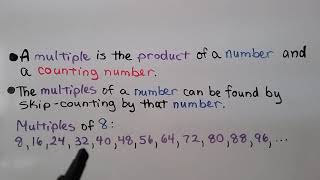 •A multiple is the product of a number and
a counting number.
•The multiples of a number can be found by
skip-counting by that number.
Multiples of 8:
8,16,24,32,40,48,56,64,72,80,88,96,...